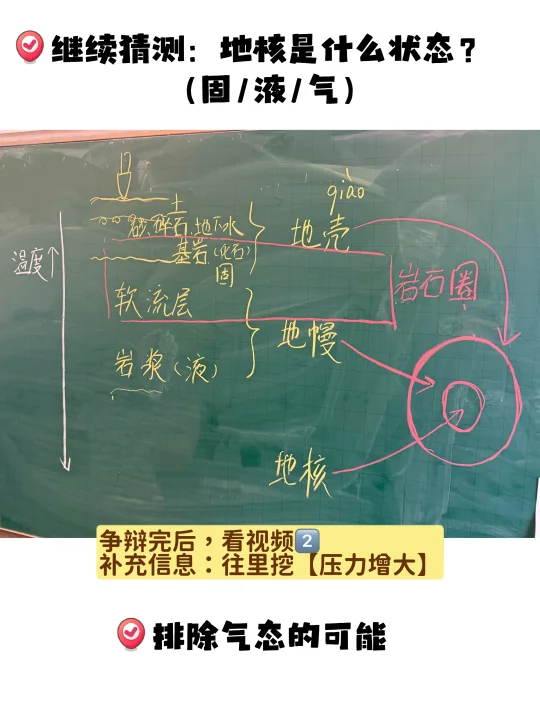 继续猜测：地核是什么状态？
（固/液/气）
qiào
土
砂、碎石、地下水
地壳
温度↑
基岩（化石）
固
岩石圈
软流层
地幔
岩浆（液）
地核
争辩完后，看视频2️⃣
补充信息：往里挖【压力增大】
排除气态的可能